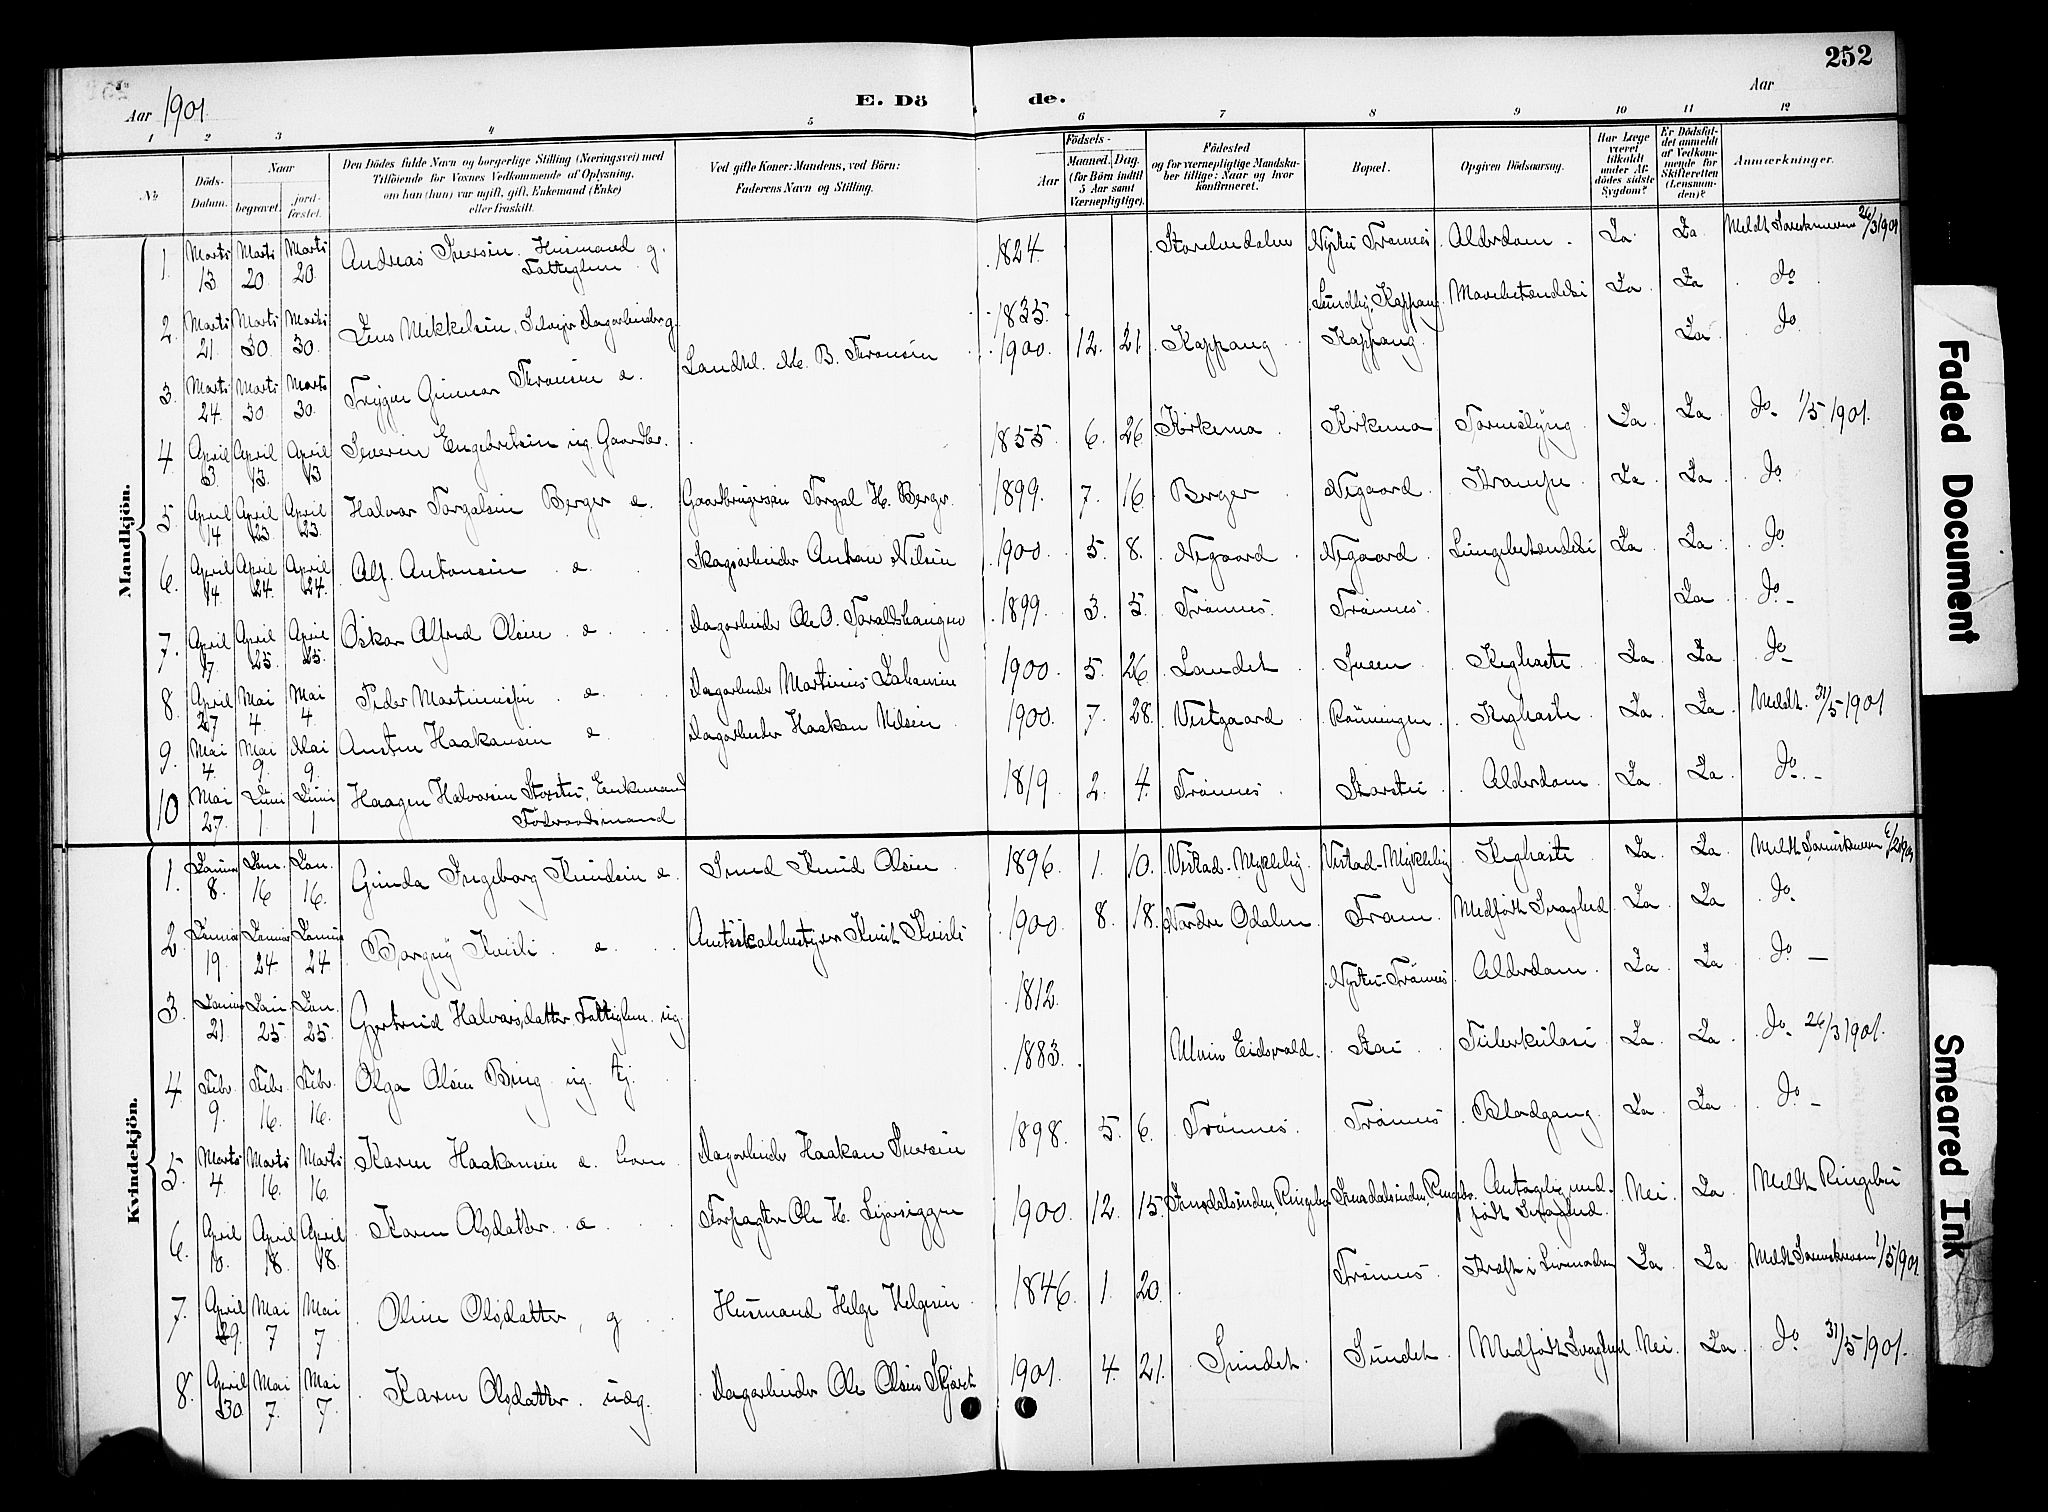 252
Aar 1901. E. Döde. Aar
1 2 3 4 5 6 7 8 9 10 11 12
No
Döds-Datum.
Naar
begravet. jord-fæstet.
Den Dödes fulde Navn og borgerlige Stilling (Næringsvei) med
Tilföiende for Voxnes Vedkommende af Oplysning,
om han (hun) var ugift, gift, Enkemand (Enke)
eller fraskilt.
Ved gifte Koner: Mandens, ved Börn:
Faderens Navn og Stilling.
Födsels-
Aar Maaned. Dag.
(for Börn indtil
5 Aar samt
Værnepligtige).
Födested
og for værnepligtige Mandska-
ber tillige: Naar og hvor
konfirmeret.
Bopæl.
Opgiven Dödsaarsag.
Har Læge
været
tilkaldt
under Af-
dödes sidste
Sygdom?
Er Dödsfal-
det anmeldt
af Vedkom-
mende for
Skifteretten
(Lensman-
den)?
Anmærkninger.
Mandkjön.
1. Marts 13 Marts 20. Marts 20 Andreas Iversen. Husmand g. Fattiglem 1824. Nystu Trønnes Alderdom. Ja. Ja Meldt 26/3 1901
2. Marts 21 Marts 30 Marts 30. Jens Mikkelsen, g. 1835. Lundby, Koppang Mavebetændelse Ja Ja Do
3. Marts 24. Marts 30. Marts 30. Trygve Gunnar Thronsen e. Landhl. M. B. Thronsen 1900. 12. 21. Koppang Koppang. Ja Do
4. April 3 April 13. April 13 Engebretsen ug. Gaardbr. 1855 6. 26 Kirkemo Kirkemo Tarmslyng Ja Ja Do 1/5 1901.
5. April 14 April 23 April 23. Halvor Torgalsen Berger e. Torgal H. Berger. 1899. 7. 16. Berger Negaard Krampe Ja Ja Do
6. April 14. April 24. April 24. Alf. Antonsen e. Skogsarbeider Anton Nilsen 1900. 5. 8. Negaard Negaard Lungebetændelse Ja Ja Do
7. April 17 April 25. April 25. Oskar Alfred Olsen e. Dagarbeider Ole O. 1899. 3. 5. Trønnes. Trønnes. Ja Do
8. April 27 Mai 4. Mai 4 Peder Martinussen e. Dagarbeider Martinus Johansen 1900 5. 26. Landet Kighoste Ja Ja Do
9. Mai 4. Mai 9. Mai 9. Austen Haakonsen e. Dagarbeider Haakon Nilsen 1900. 7. 28. Vestgaard Rønningen Kighoste Ja Ja Meldt. 31/5 1901
10 Mai 27. Juni 1. Juni 1 Haagen Halvorsen Storstu, Enkemand Føderaadsmand 1819 2. 4. Trønnes. Storstu Alderdom Ja Ja Do
Kvindekjön.
1. Januar 8. Jan. 16 Jan. 16. Gunda Ingeborg Knudsen e. Smed Knud Olsen 1896. 1. 10. Vestad-Mykleby. Vestad-Mykleby Kighoste Ja Ja Meldt
2 Januar 19. Januar 24 Januar 24 Borgny e. 1900. 8. 18. Nordre Odalen Medfødt Svaghed Ja Ja Do
3. Januar 21 Jan 25 Jan. 25. Gjertrud Halvorsdatter, Fattiglem ug. 1812. Nystu-Trønnes Alderdom. Ja Ja Do
4. Febr. 9. Febr. 16. Febr. 16. Olga Olsen Bring ug. tj. 1883. Eidsvold. Stai Tuberkulose Ja Ja Do 26/3 1901.
5 Marts 4. Marts 16. Marts 16. Karen Haakonsen e. barn. Dagarbeider Haakon Iversen 1898. 5. 6. Trønnes. Trønnes Blodgang. Ja Ja Do
6. April 10. April 18. April 18. Karen Olsdatter e Forpagter Ole H. 1900. 12. 15. Ringebu Antagelig medfødt Svaghed. Nei. Ja Meldt Ringebu
7. April 29. Mai 7 Mai 7. Oline Olsdatter, g Husmand Helge Helgesen 1846. 1. 20. Trønnes. Kræft i Livmoderen Ja Ja Meldt 1/5 1901
8. April 30. Mai 7. Mai 7. Karen Olsdatter. uæg. Dagarbeider Ole Olsen 1901 4. 21. Sundet. Sundet. Medfødt Svaghed Nei. Ja Do 31/5 1901.
Faded Document
Smeared Ink